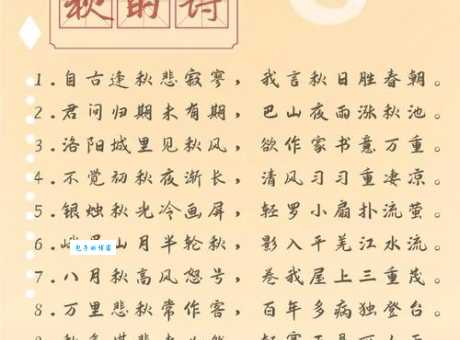 秋的诗
1.自古逢秋悲寂寥，我言秋日胜春朝。
2.君问归期未有期，巴山夜雨涨秋池。
3.洛阳城里见秋风，欲作家书意万重。
4.不觉初秋夜渐长，清风习习重凄凉。
5.银烛秋光冷画屏，轻罗小扇扑流萤。
6.山月半轮秋，影入平羌江水流。
7.八月秋高风怒号，卷我屋上三重茅。
8.万里悲秋常作客，百年多病独登台。